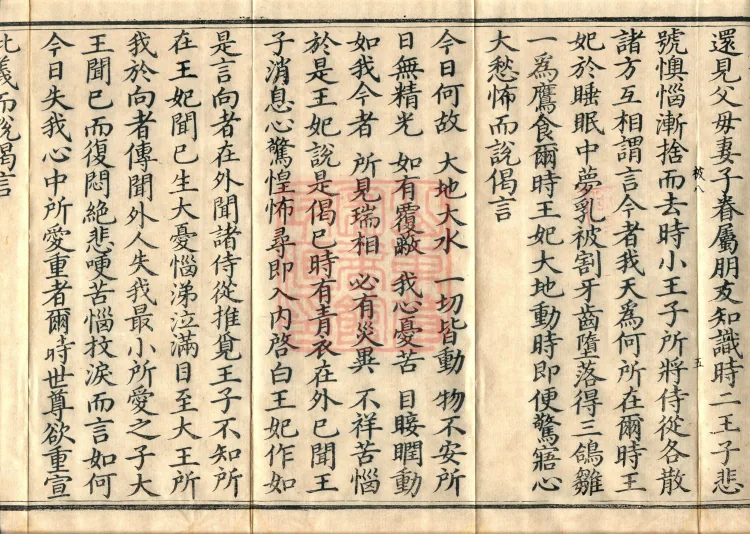 還見父母妻子眷屬朋友知識時二王子悲
號懊惱漸捨而去時小王子所將侍從各散
諸方互相謂言今者我天為何所在爾時王
妃於睡眠中夢乳被割牙齒墮落得三鴿雛
一為鷹食爾時王妃大地動時即便驚寤心
大愁怖而說偈言
今日何故 大地大水 一切皆動 物不安所
日無精光 如有覆蔽 我心憂苦 目睫瞤動
如我今者 所見瑞相 必有災異 不祥苦惱
於是王妃說是偈已時有青衣在外已聞王
子消息心驚惶怖尋即入內啓白王妃作如
是言向者在外聞諸侍從推覓王子不知所
在王妃聞已生大憂惱涕泣滿目至大王所
我於向者傳聞外人失我最小所愛之子大
王聞已而復悶絕悲哽苦惱抆淚而言如何
今日失我心中所愛重者爾時世尊欲重宣
此義而說偈言
五